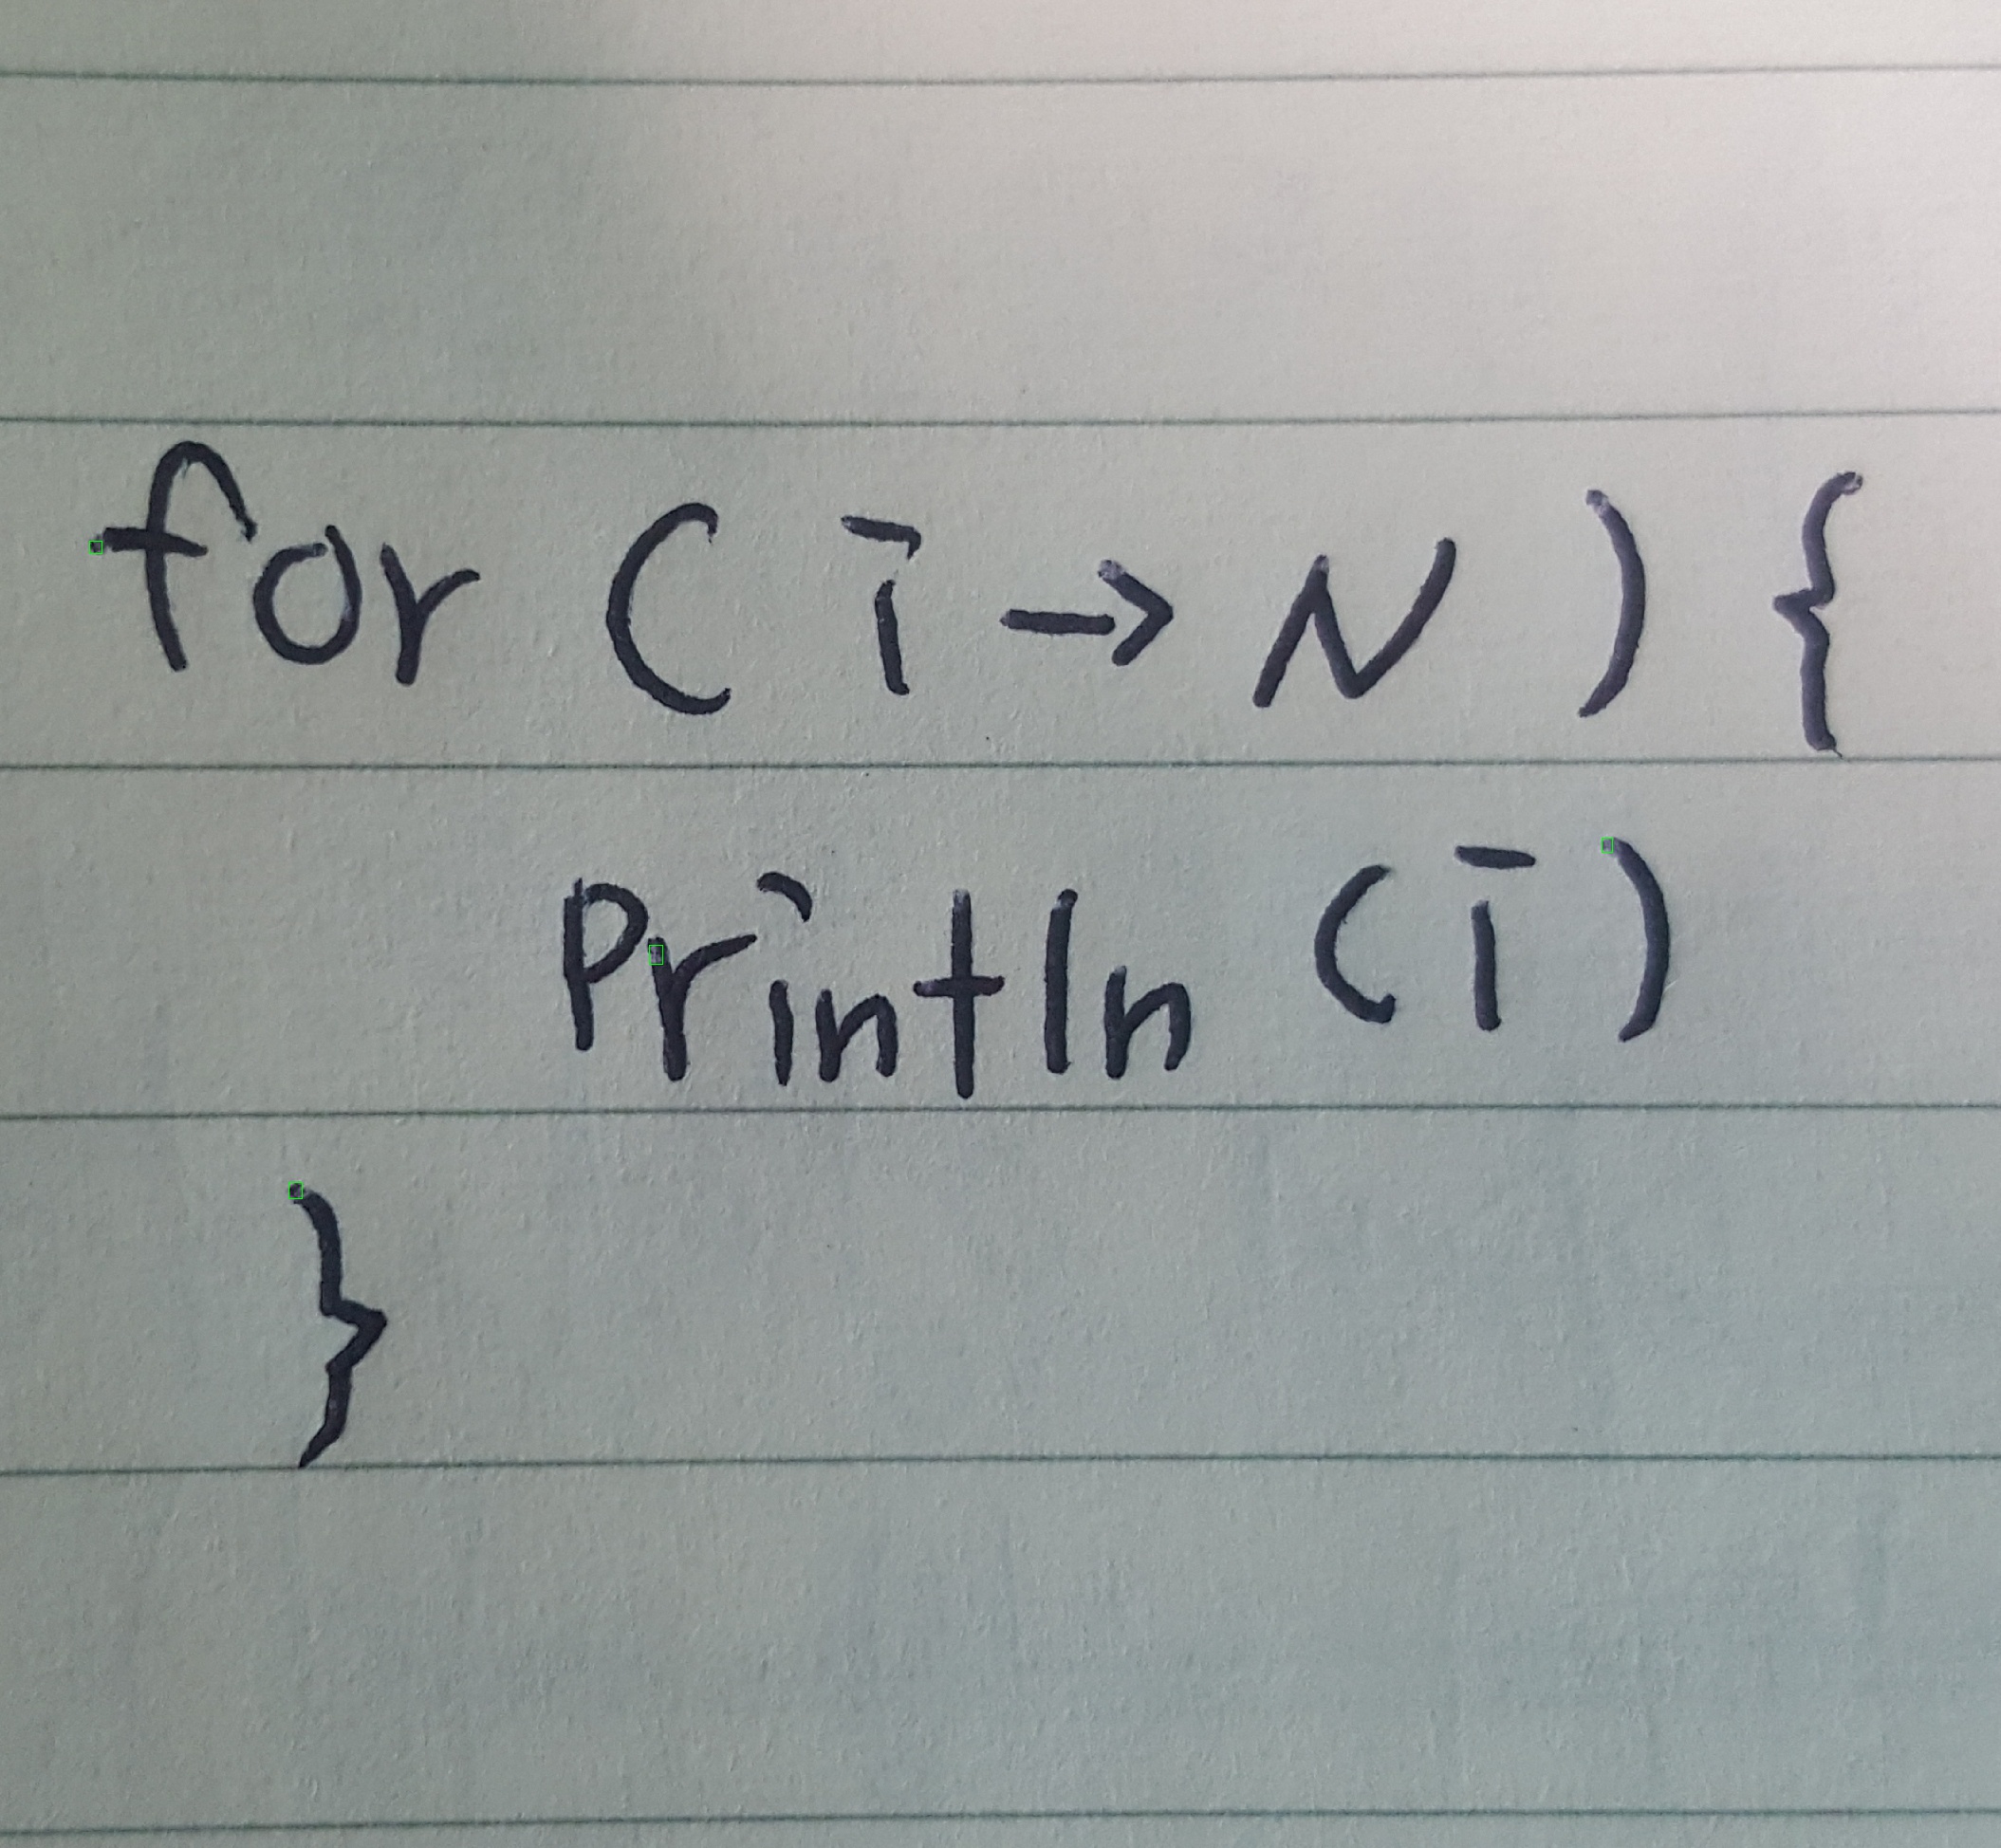 for ( i → N ) {
Println (i)
}